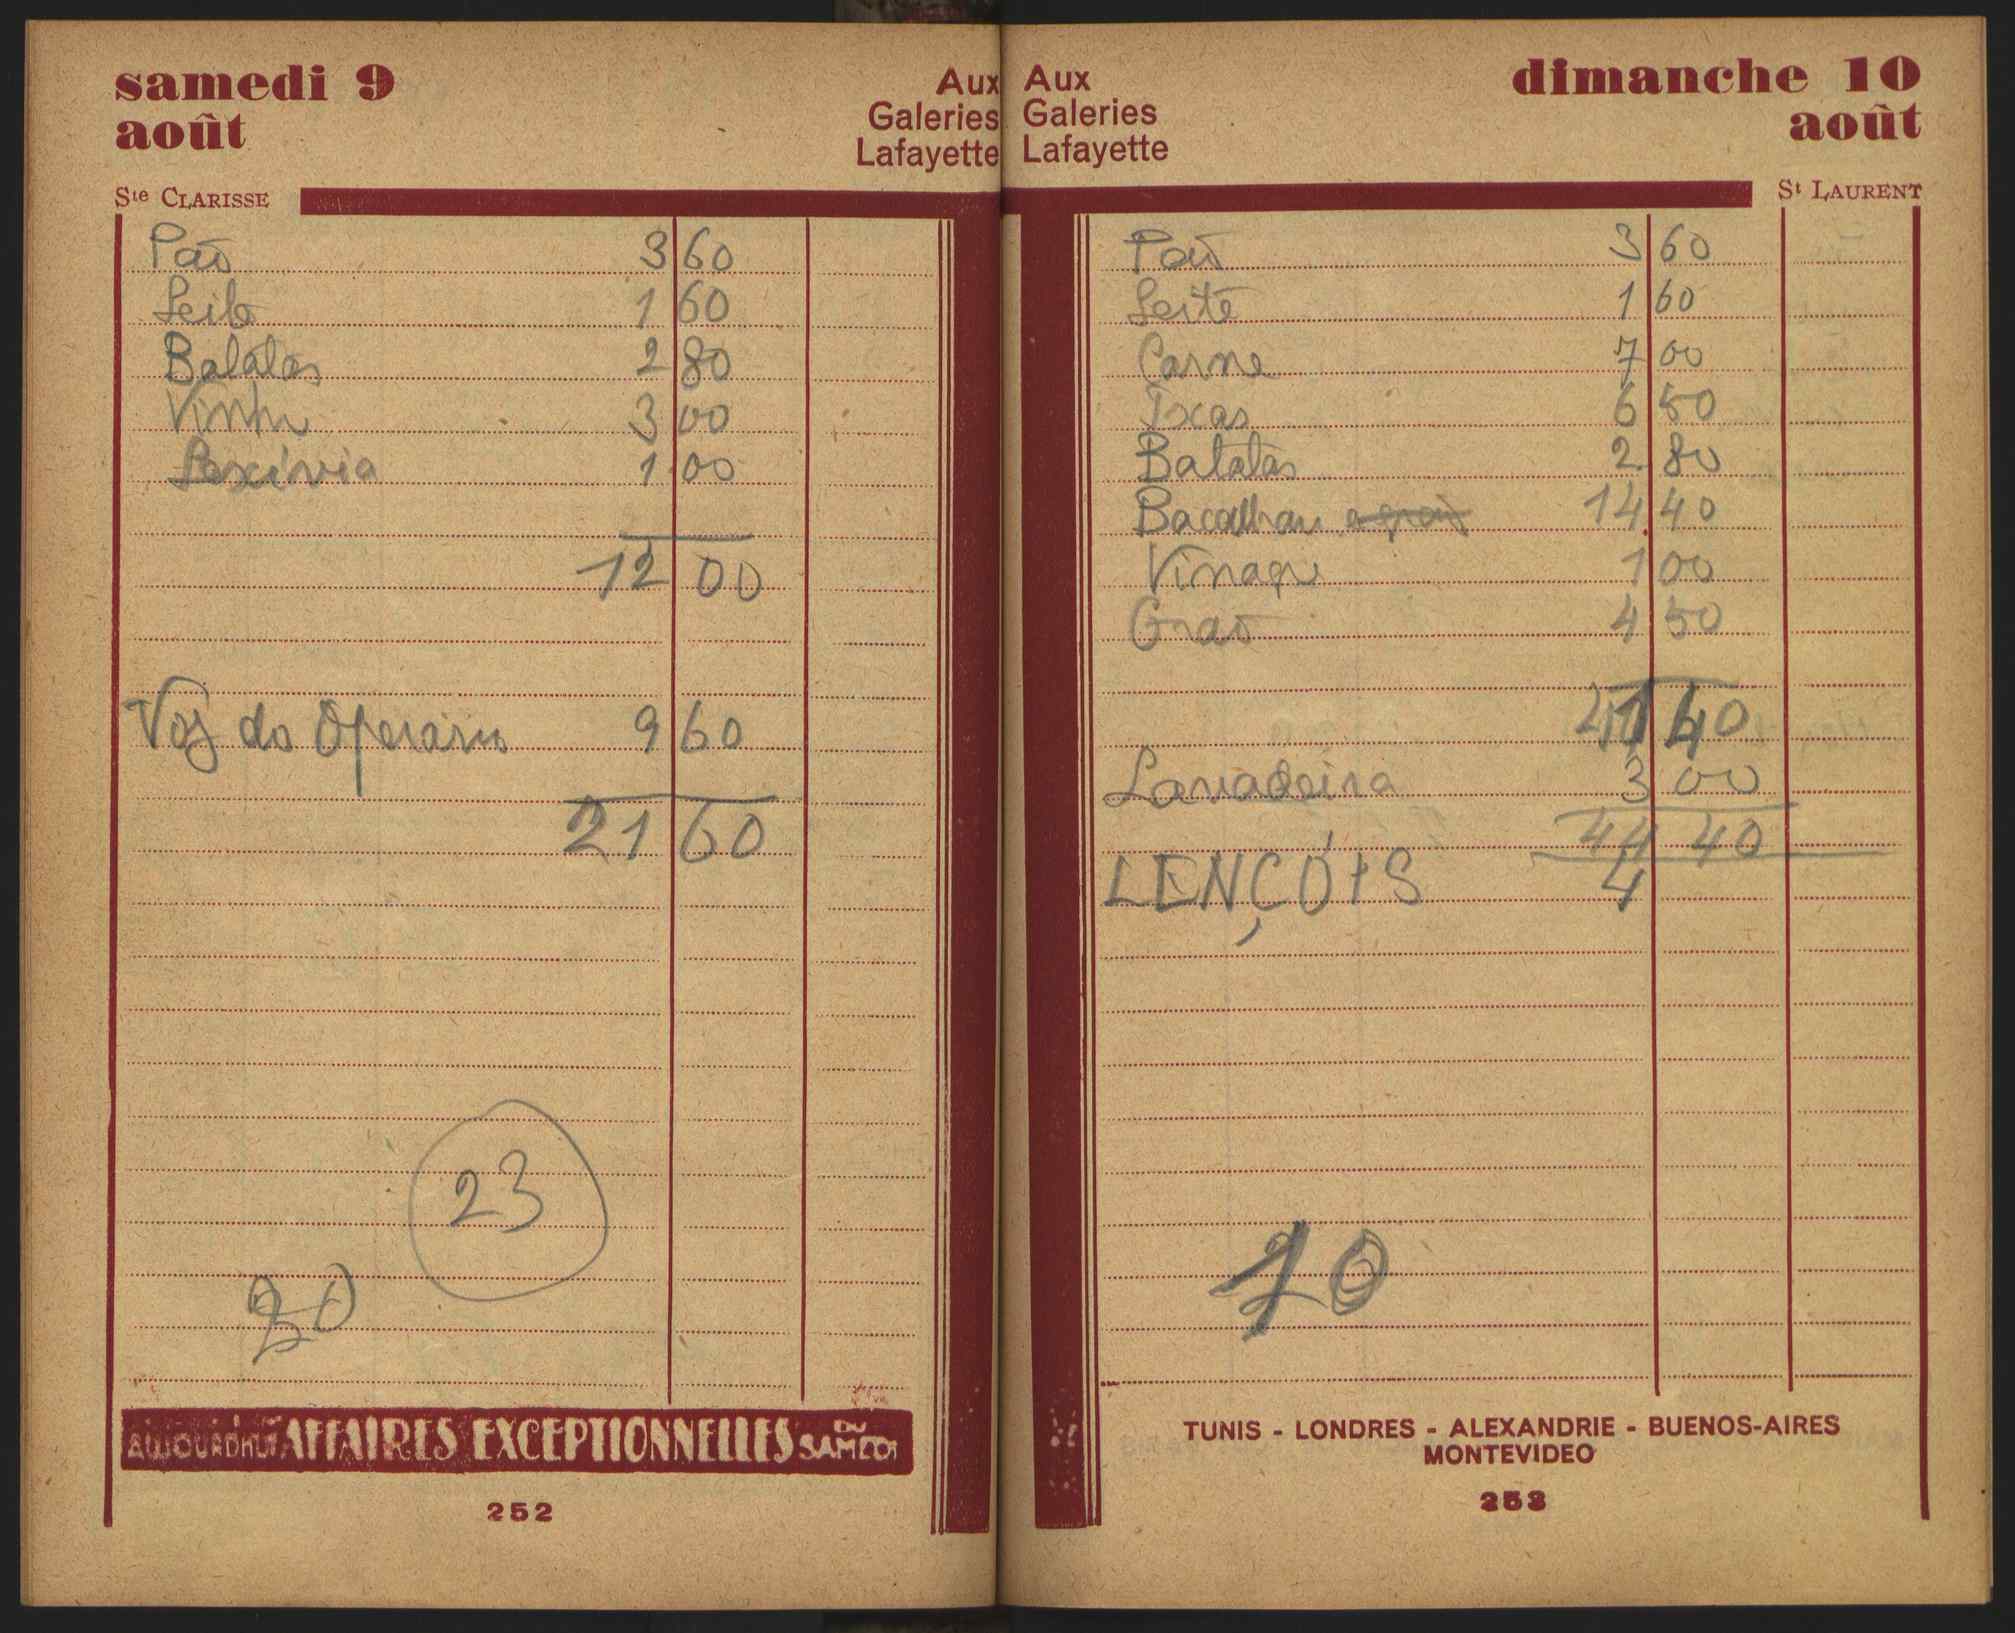 samedi 9
août
Aux
Galeries
Lafayette
Ste CLARISSE
Pão 3 60
Leite 1 60
Batatas 2 80
Vinho 3 00
Lexívia 1 00
12 00
Voz do Operário 9 60
21 60
23
AUJOURD'HUI AFFAIRES EXCEPTIONNELLES DU SAMEDI
252
Aux
Galeries
Lafayette
dimanche 10
août
St LAURENT
Pão 3 60
Leite 1 60
Carne 7 00
Iscas 6 50
Batatas 2 80
Bacalhau 14 40
Vinagre 1 00
Grão 4 50
41 40
Lavadeira 3 00
44 40
LENÇÓIS 4
10
TUNIS - LONDRES - ALEXANDRIE - BUENOS-AIRES
MONTEVIDEO
253